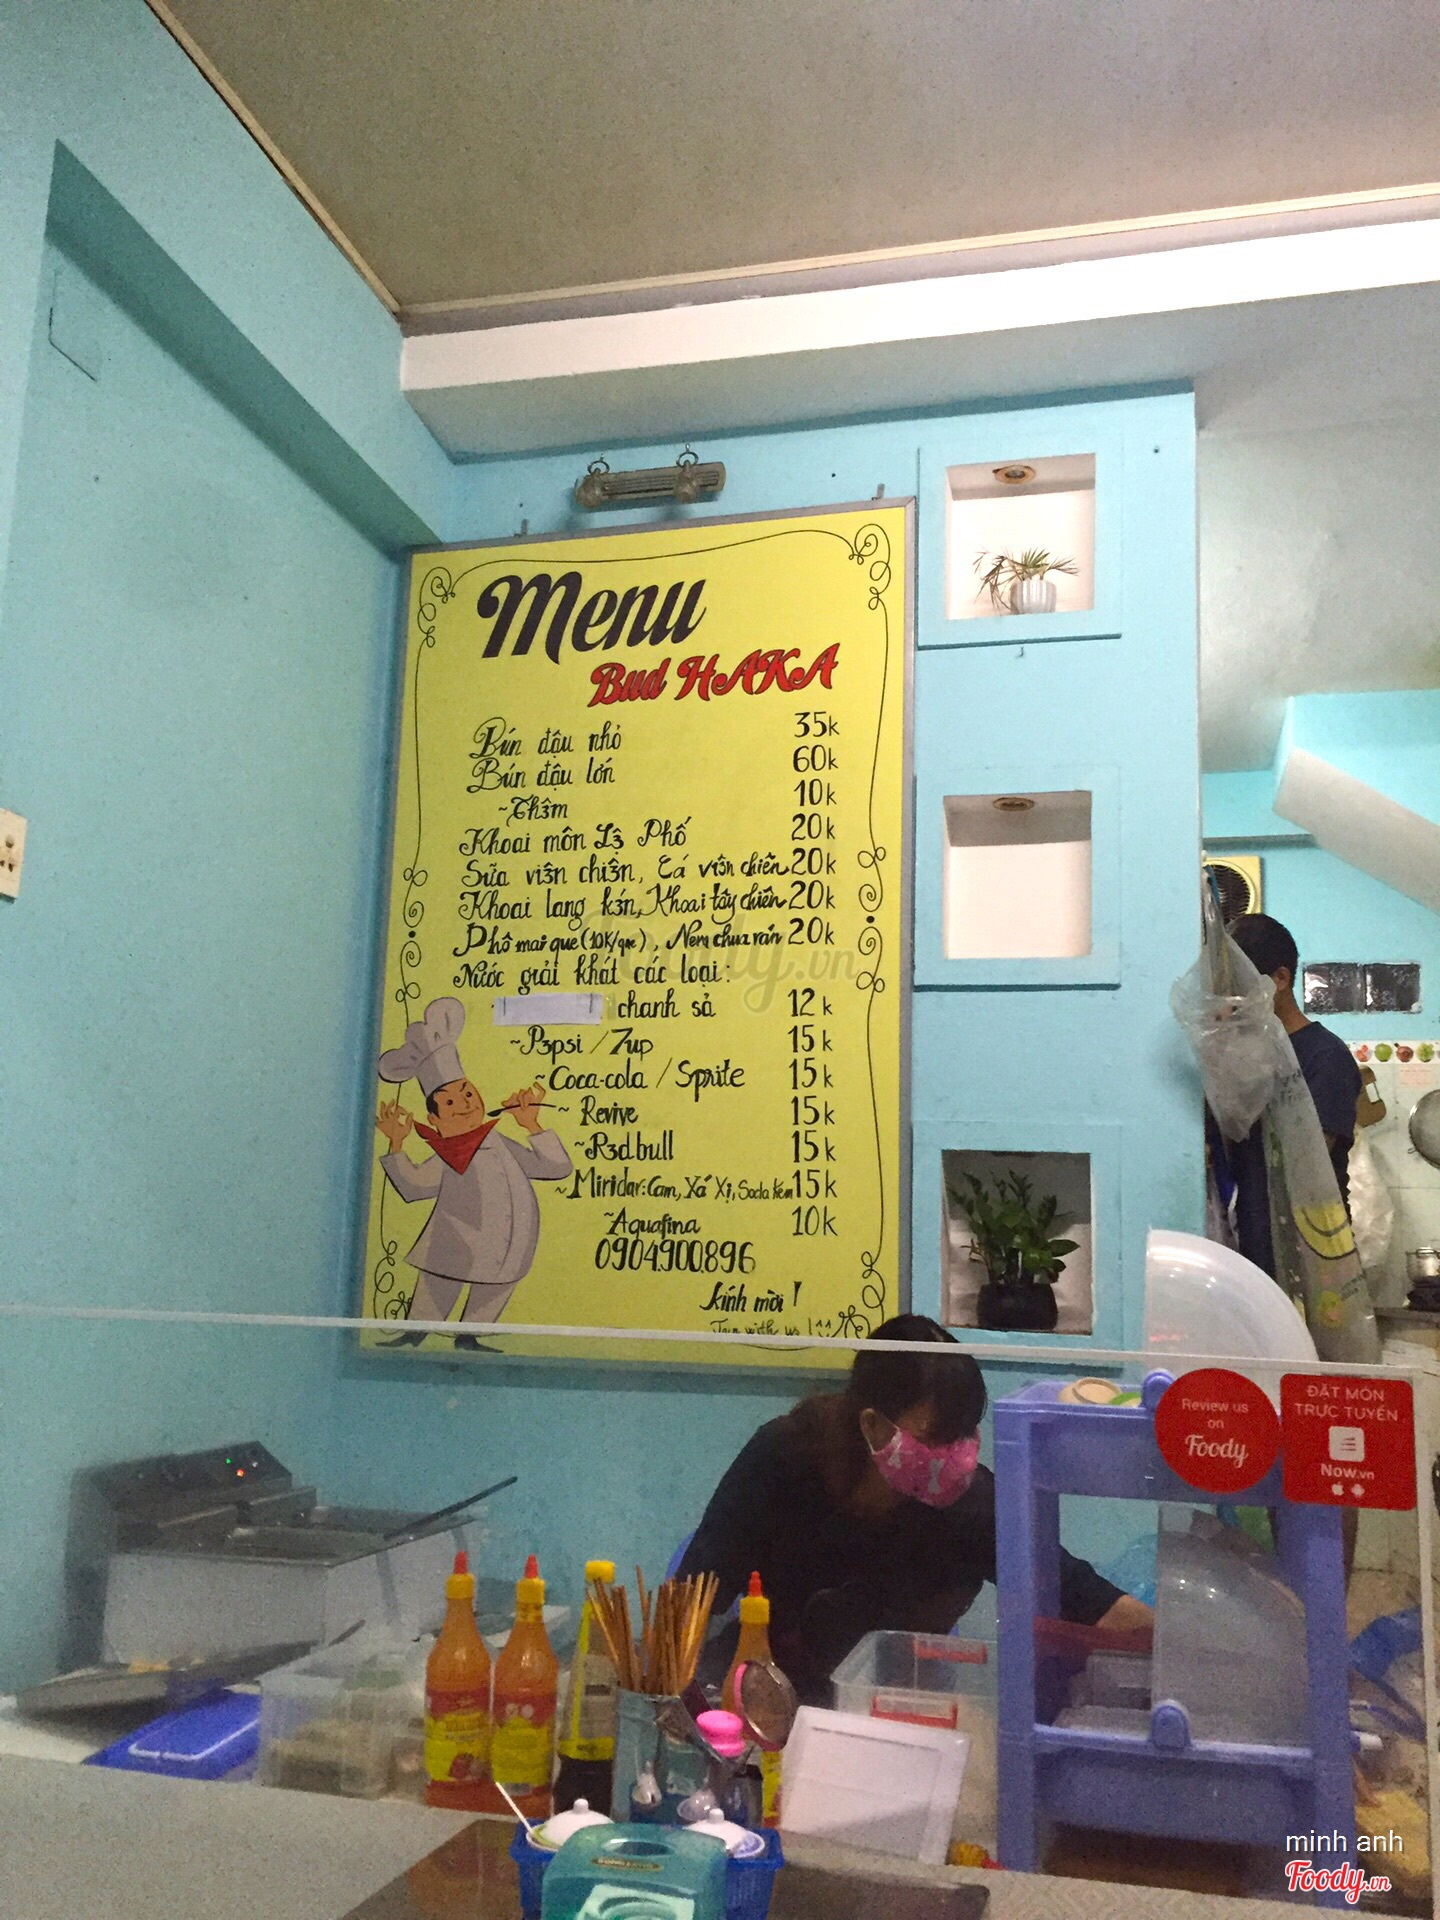 Menu
Bud HAKA
Bún đậu nhỏ 35k
Bún đậu lớn 60k
~Thêm 10k
Khoai môn Lệ Phố 20k
Sữa viên chiên, Cá viên chiên 20k
Khoai lang kén, Khoai tây chiên 20k
Phô mai que (10k/que), Nem chua rán 20k
Nước giải khát các loại:
chanh sả 12k
~Pepsi / 7up 15k
~Coca-cola / Sprite 15k
~ Revive 15k
~Redbull 15k
~Miridar: Cam, Xá Xị, Soda kem 15k
~Aquafina 10k
0904.900.896
kính mời !
Foody.vn
Review us
on
Foody
ĐẶT MÓN
TRỰC TUYẾN
Now.vn
minh anh
Foody.vn